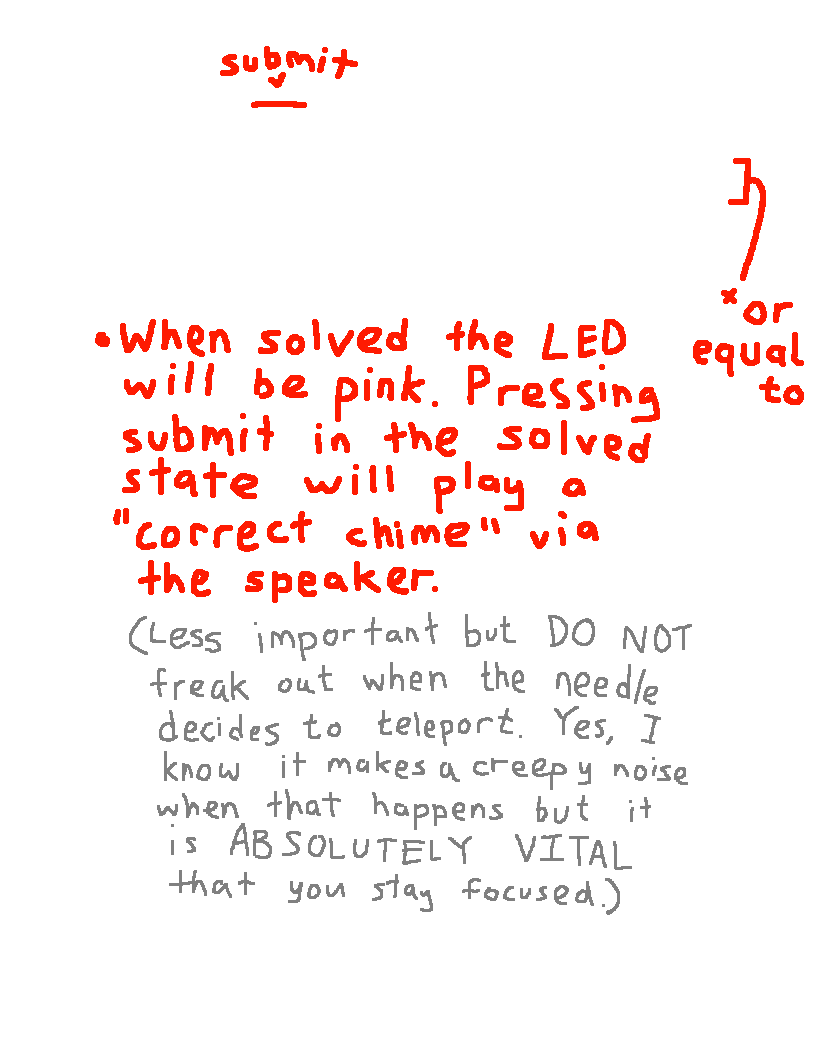 submit
*or
equal
to
•When solved the LED
will be pink. Pressing
submit in the solved
state will play a
"correct chime" via
the speaker.
(Less important but DO NOT
freak out when the needle
decides to teleport. Yes, I
know it makes a creepy noise
when that happens but it
is ABSOLUTELY VITAL
that you stay focused.)